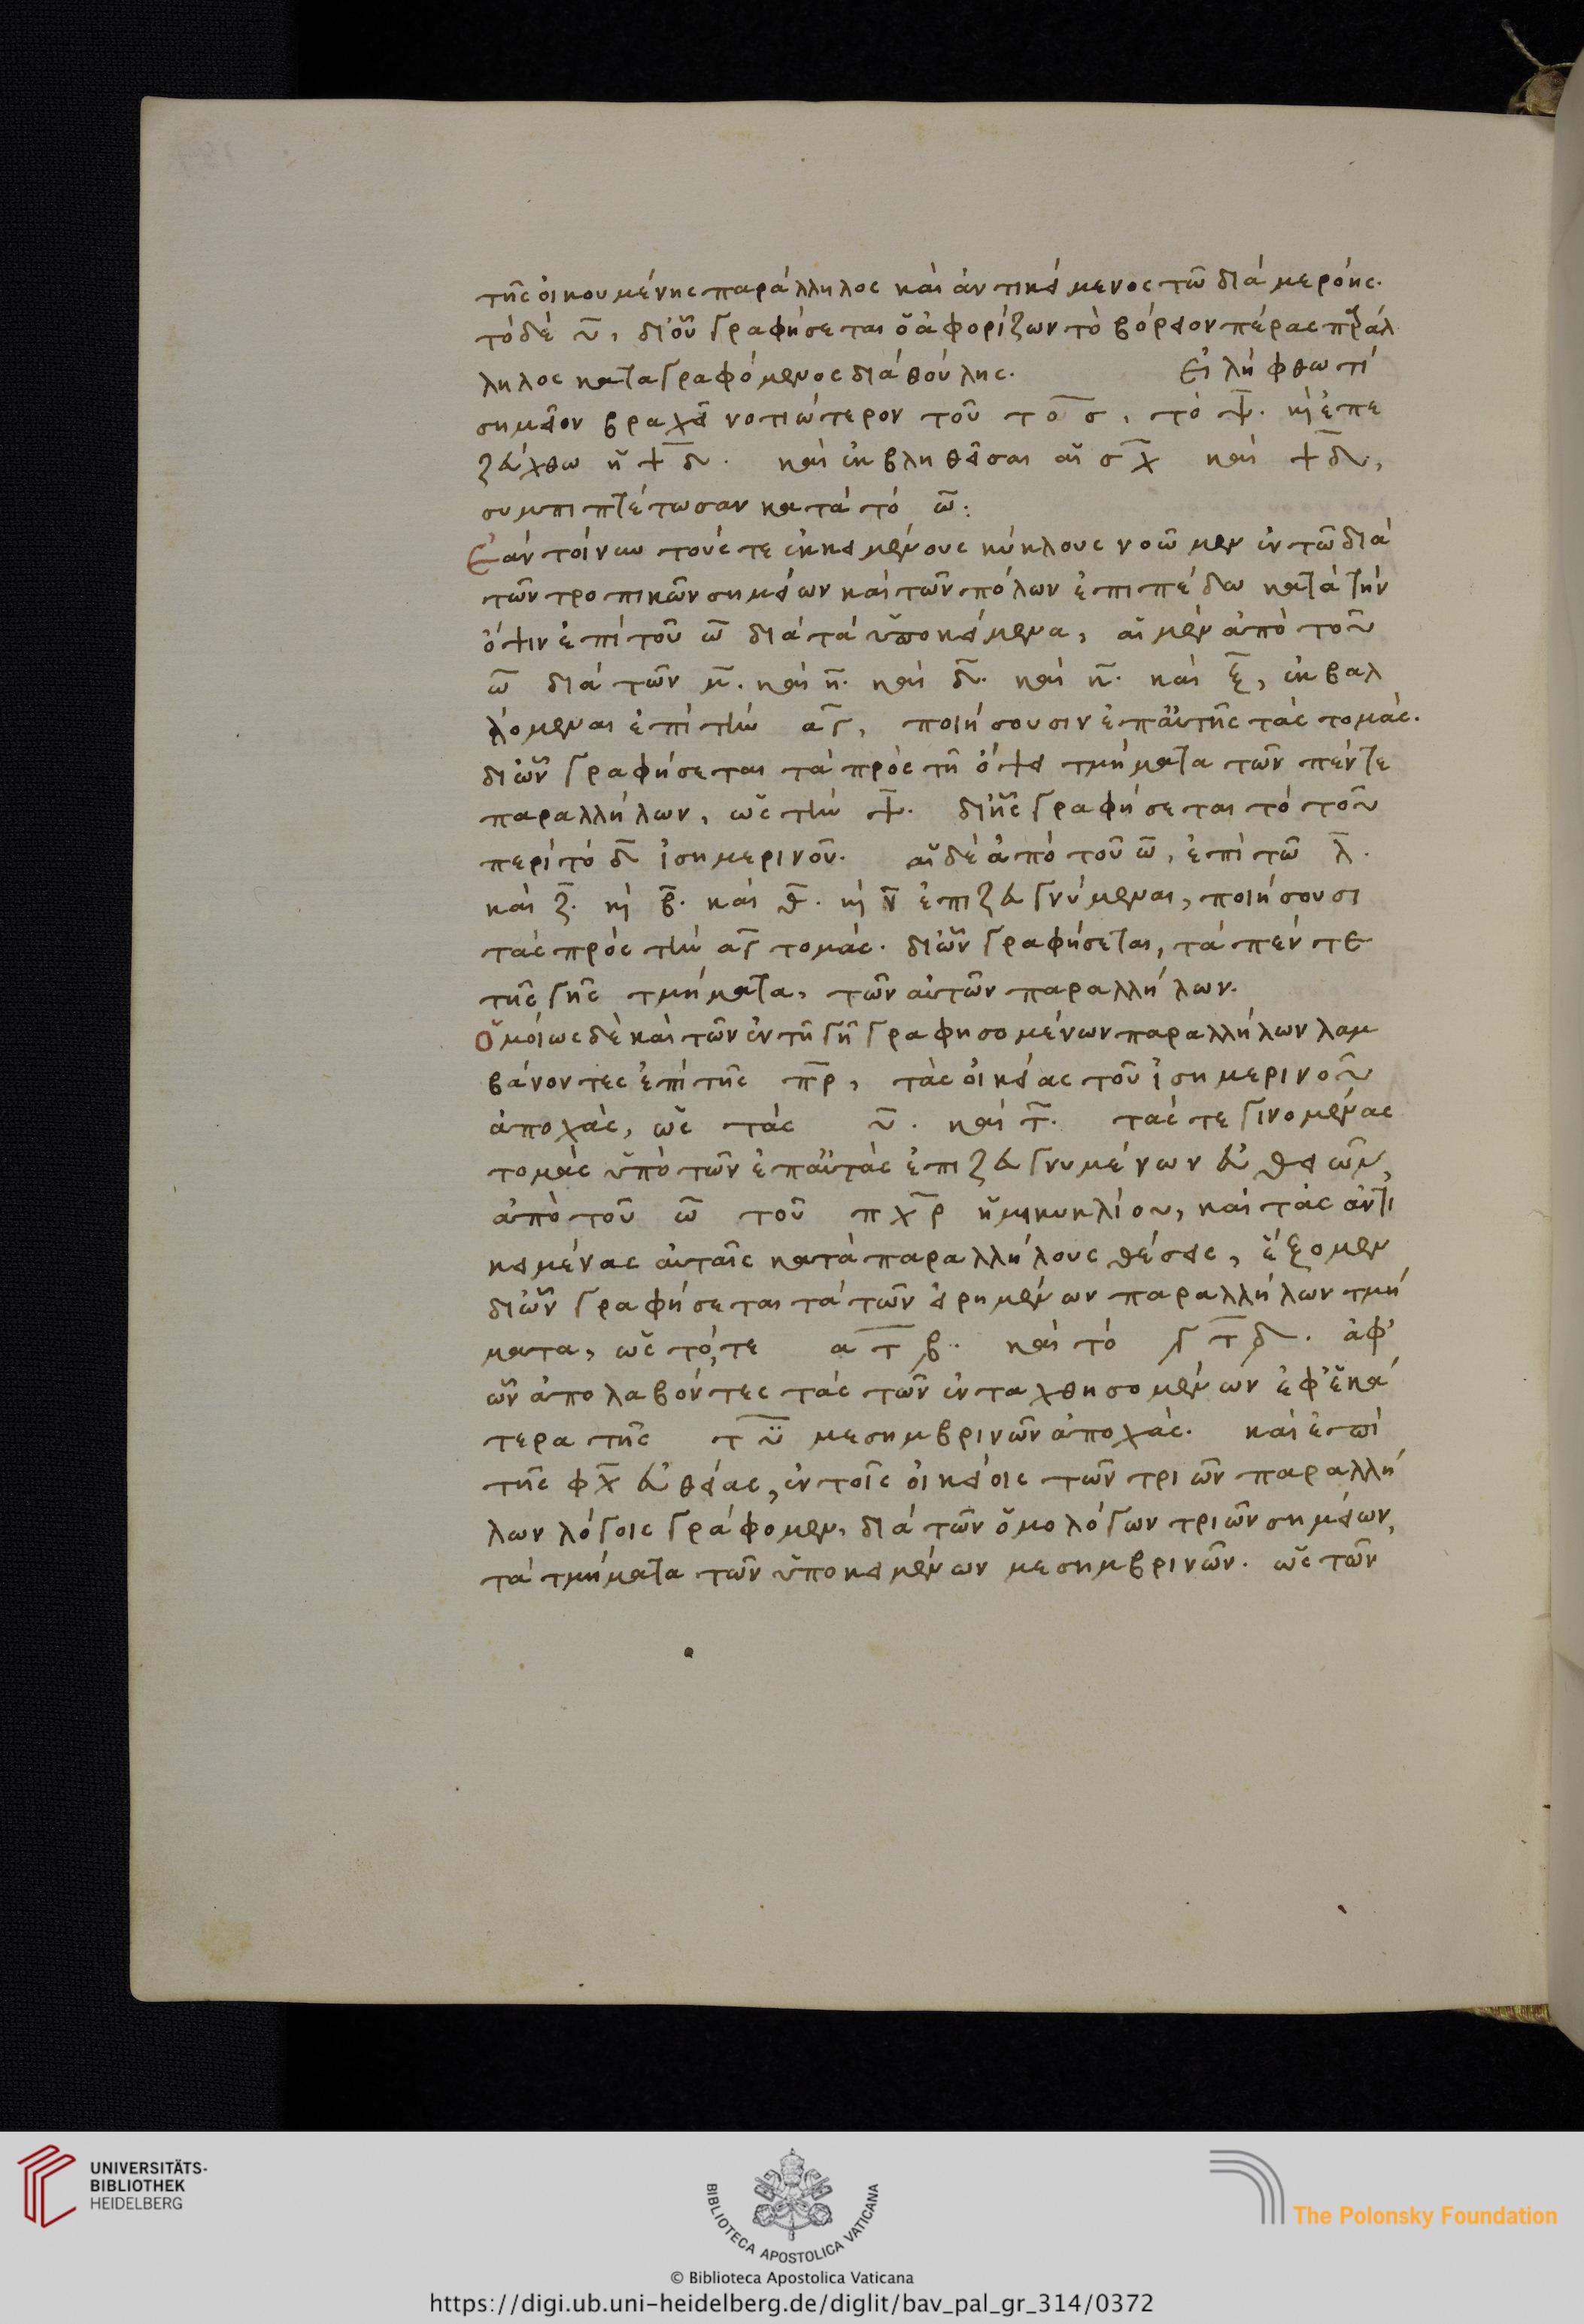 τῆς οἰκουμένης παράλληλος καὶ ἀντικείμενος τῶ διὰ μερόης.
τὸ δὲ υ̅, δι' οὗ γραφήσεται ὁ ἀφορίζων τὸ βόρειον πέρας παράλ
ληλος καταγραφόμενος διὰ θούλης. Εἰλήφθω τί
σημεῖον βραχεῖ νοτιώτερον τοῦ τ̅ο̅ σ, τὸ ψ̅. κὶ ἐπε
ζεύχθω ἡ ψ̅δ̅. καὶ ἐκβληθεῖσαι αἱ σ̅χ̅ καὶ ψ̅δ̅,
συμπιπτέτωσαν κατὰ τὸ ω̅:
Ἐὰν τοίνυν τούς τε ἐκκειμένους κύκλους νοῶμεν ἐν τῶ διὰ
τῶν τροπικῶν σημείων καὶ τῶν πόλων ἐπιπέδω κατὰ τὴν
ὄψιν ἐπὶ τοῦ ω̅ διὰ τὰ ὑποκείμενα, αἱ μὲν ἀπὸ τοῦ
ω̅ διὰ τῶν μ̅. καὶ η̅. καὶ δ̅. καὶ κ̅. καὶ ξ̅, ἐκβαλ
λόμεναι ἐπὶ τὴν α̅γ̅, ποιήσουσιν ἐπ' αὐτῆς τὰς τομάς.
δι' ὧν γραφήσεται τὰ πρὸς τῆ ὄψει τμήματα τῶν πέντε
παραλλήλων, ὡς τὴν ψ̅. δι' ἧς γραφήσεται τὸ τοῦ
περὶ τὸ δ̅ ἰσημερινοῦ. αἱ δὲ ἀπὸ τοῦ ω̅, ἐπὶ τῶ λ̅.
καὶ ζ̅. κὶ β̅. καὶ θ̅. κὶ ν̅ ἐπιζευγνύμεναι, ποιήσουσι
τὰς πρὸς τὴν α̅γ̅ τομάς. δι' ὧν γραφήσεται, τὰ πέντε
τῆς γῆς τμήματα, τῶν αὐτῶν παραλλήλων.
Ὁμοίως δὲ καὶ τῶν ἐν τῆ γῆ γραφησομένων παραλλήλων λαμ
βάνοντες ἐπὶ τῆς π̅ρ̅, τὰς οἰκείας τοῦ ἰσημερινοῦ
ἀποχάς, ὡς τὰς υ̅. καὶ τ̅. τάς τε γινομένας
τομὰς ὑπὸ τῶν ἐπ' αὐτὰς ἐπιζευγνυμένων εὐθειῶν,
ἀπὸ τοῦ ω̅ τοῦ π̅χ̅ρ̅ ἡμικυκλίου, καὶ τὰς ἀντι
κειμένας αὐταῖς κατὰ παραλλήλους θέσεις, ἕξομεν
δι' ὧν γραφήσεται τὰ τῶν εἰρημένων παραλλήλων τμή
ματα, ὡς τό, τε α̅τ̅β̅. καὶ τὸ γ̅τ̅δ̅. ἀφ'
ὧν ἀπολαβόντες τὰς τῶν ἐνταχθησομένων ἐφ' ἑκά
τερα τῆς τ̅υ̅ μεσημβρινῶν ἀποχάς. καὶ ἐπὶ
τῆς φ̅χ̅ εὐθείας, ἐν τοῖς οἰκείοις τῶν τριῶν παραλλή
λων λόγοις γράφομεν, διὰ τῶν ὁμολόγων τριῶν σημείων,
τὰ τμήματα τῶν ὑποκειμένων μεσημβρινῶν. ὡς τῶν
UNIVERSITÄTS-
BIBLIOTHEK
HEIDELBERG
BIBLIOTECA APOSTOLICA VATICANA
The Polonsky Foundation
© Biblioteca Apostolica Vaticana
https://digi.ub.uni-heidelberg.de/diglit/bav_pal_gr_314/0372